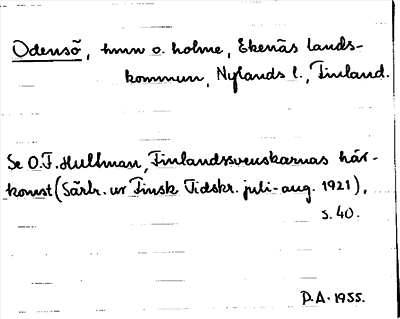 Odensö, hmn o. holme, Ekenäs lands-
kommun, Nylands l., Finland.
Se O.F. Hultman, Finlandssvenskarnas här-
komst (Särtr. ur Finsk Tidskr. juli-aug. 1921),
s. 40.
D.A. 1955.